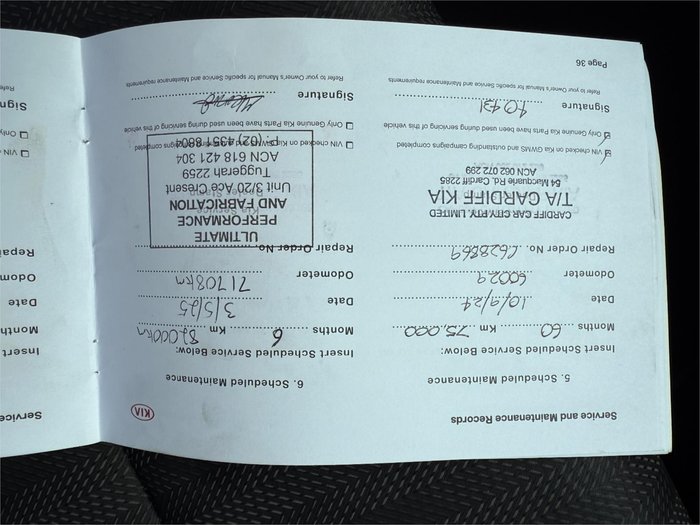 Service and Maintenance Records
5. Scheduled Maintenance
Insert Scheduled Service Below:
Months 60 Km 75,000
Date 10/9/24
Odometer 60029
Repair Order No. C628869
CARDIFF CAR CITY PTY LIMITED
T/A CARDIFF KIA
54 Macquarie Rd. Cardiff 2285
ACN 062 072 299
VIN checked on Kia GWMS and outstanding campaigns completed
Only Genuine Kia Parts have been used during servicing of this vehicle
Signature
Refer to your Owner's Manual for specific Service and Maintenance requirements
Page 36
KIA
6. Scheduled Maintenance
Insert Scheduled Service Below:
Months 6 Km 82,000km
Date 3/5/25
Odometer 71708km
Repair Order No.
ULTIMATE
PERFORMANCE
AND FABRICATION
Unit 3/20 Ace Cresent
Tuggerah 2259
ACN 618 421 304
P: (02) 4351 8804
VIN checked on Kia GWMS and outstanding campaigns completed
Only Genuine Kia Parts have been used during servicing of this vehicle
Signature
Refer to your Owner's Manual for specific Service and Maintenance requirements
Service
Insert
Months
Date
Odom
Repai
VIN
Only
Signa
Refe